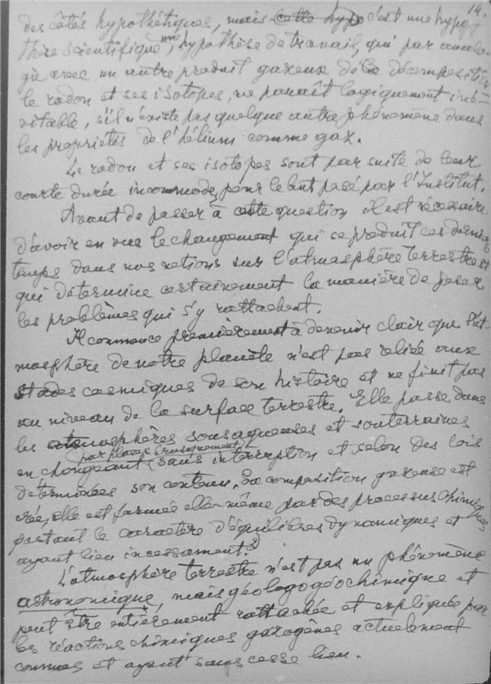 14.
des côtés hypothétiques, mais cette hypo c'est une hypo
thèse scientifique, une hypothèse de travail, qui par analo-
gie avec un autre produit gazeux de la décomposition
le radon et ses isotopes, me paraît logiquement iné-
vitable, s'il n'existe pas quelque autre phénomène dans
les propriétés de l'hélium comme gaz.
Le radon et ses isotopes sont par suite de leur
courte durée incommode, pour le but posé par l'Institut.
Avant de passer à cette question il est nécessaire
d'avoir en vue le changement qui se produit ces derniers
temps dans nos notions sur l'atmosphère terrestre et
qui détermine certainement la manière de poser
les problèmes qui s'y rattachent.
Il commence premièrement à devenir clair que l'at-
mosphère de notre planète n'est pas reliée aux
stades cosmiques de son histoire et ne finit pas
au niveau de la surface terrestre. Elle passe dans
les atmosphères sousaqueuses et souterraines
par places
en changeant sans interruption et selon des lois
déterminées son contenu. Sa composition gazeuse est
créée, elle est formée elle-même par des processus chimiques
portant le caractère d'équilibres dynamiques et
ayant lieu incessament.
L'atmosphère terrestre n'est pas un phénomène
astronomique, mais géologogéochimique et
peut être entièrement rattachée et expliquée par
les réactions chimiques gazogènes actuelment
connues et ayant sans cesse lieu.